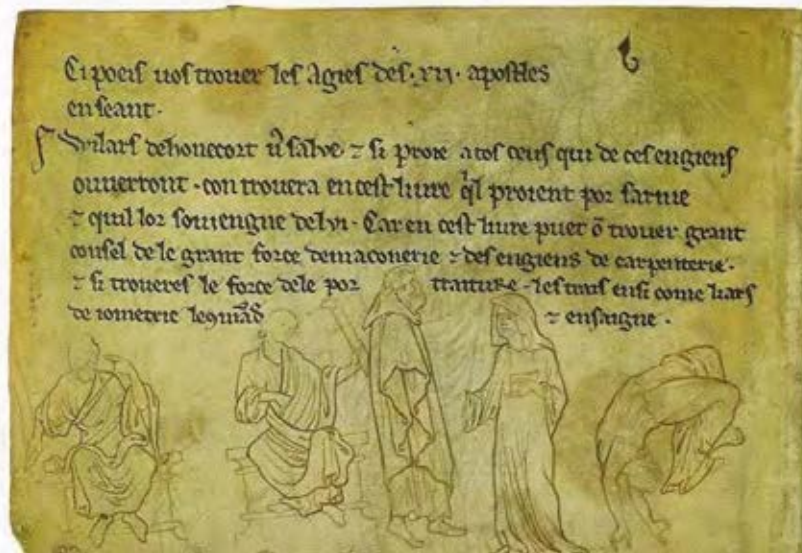 Ci poeis uos trouer les Agies des .xii. apostles
en seant.
Wilars dehonecort ũ salve ⁊ si proie a tos ceus qui de ces engiens
ouuerront . con trouera en cest liure q̃l proient por sarme
⁊ quil lor souiengne delvi . Car en cest liure puet õ trouer grant
consel de le grant force demaconerie ⁊ des engiens de carpenterie .
⁊ si troueres le force dele por traiture . les trais ensi come liars
de iometrie le ⁊ ensaigne .